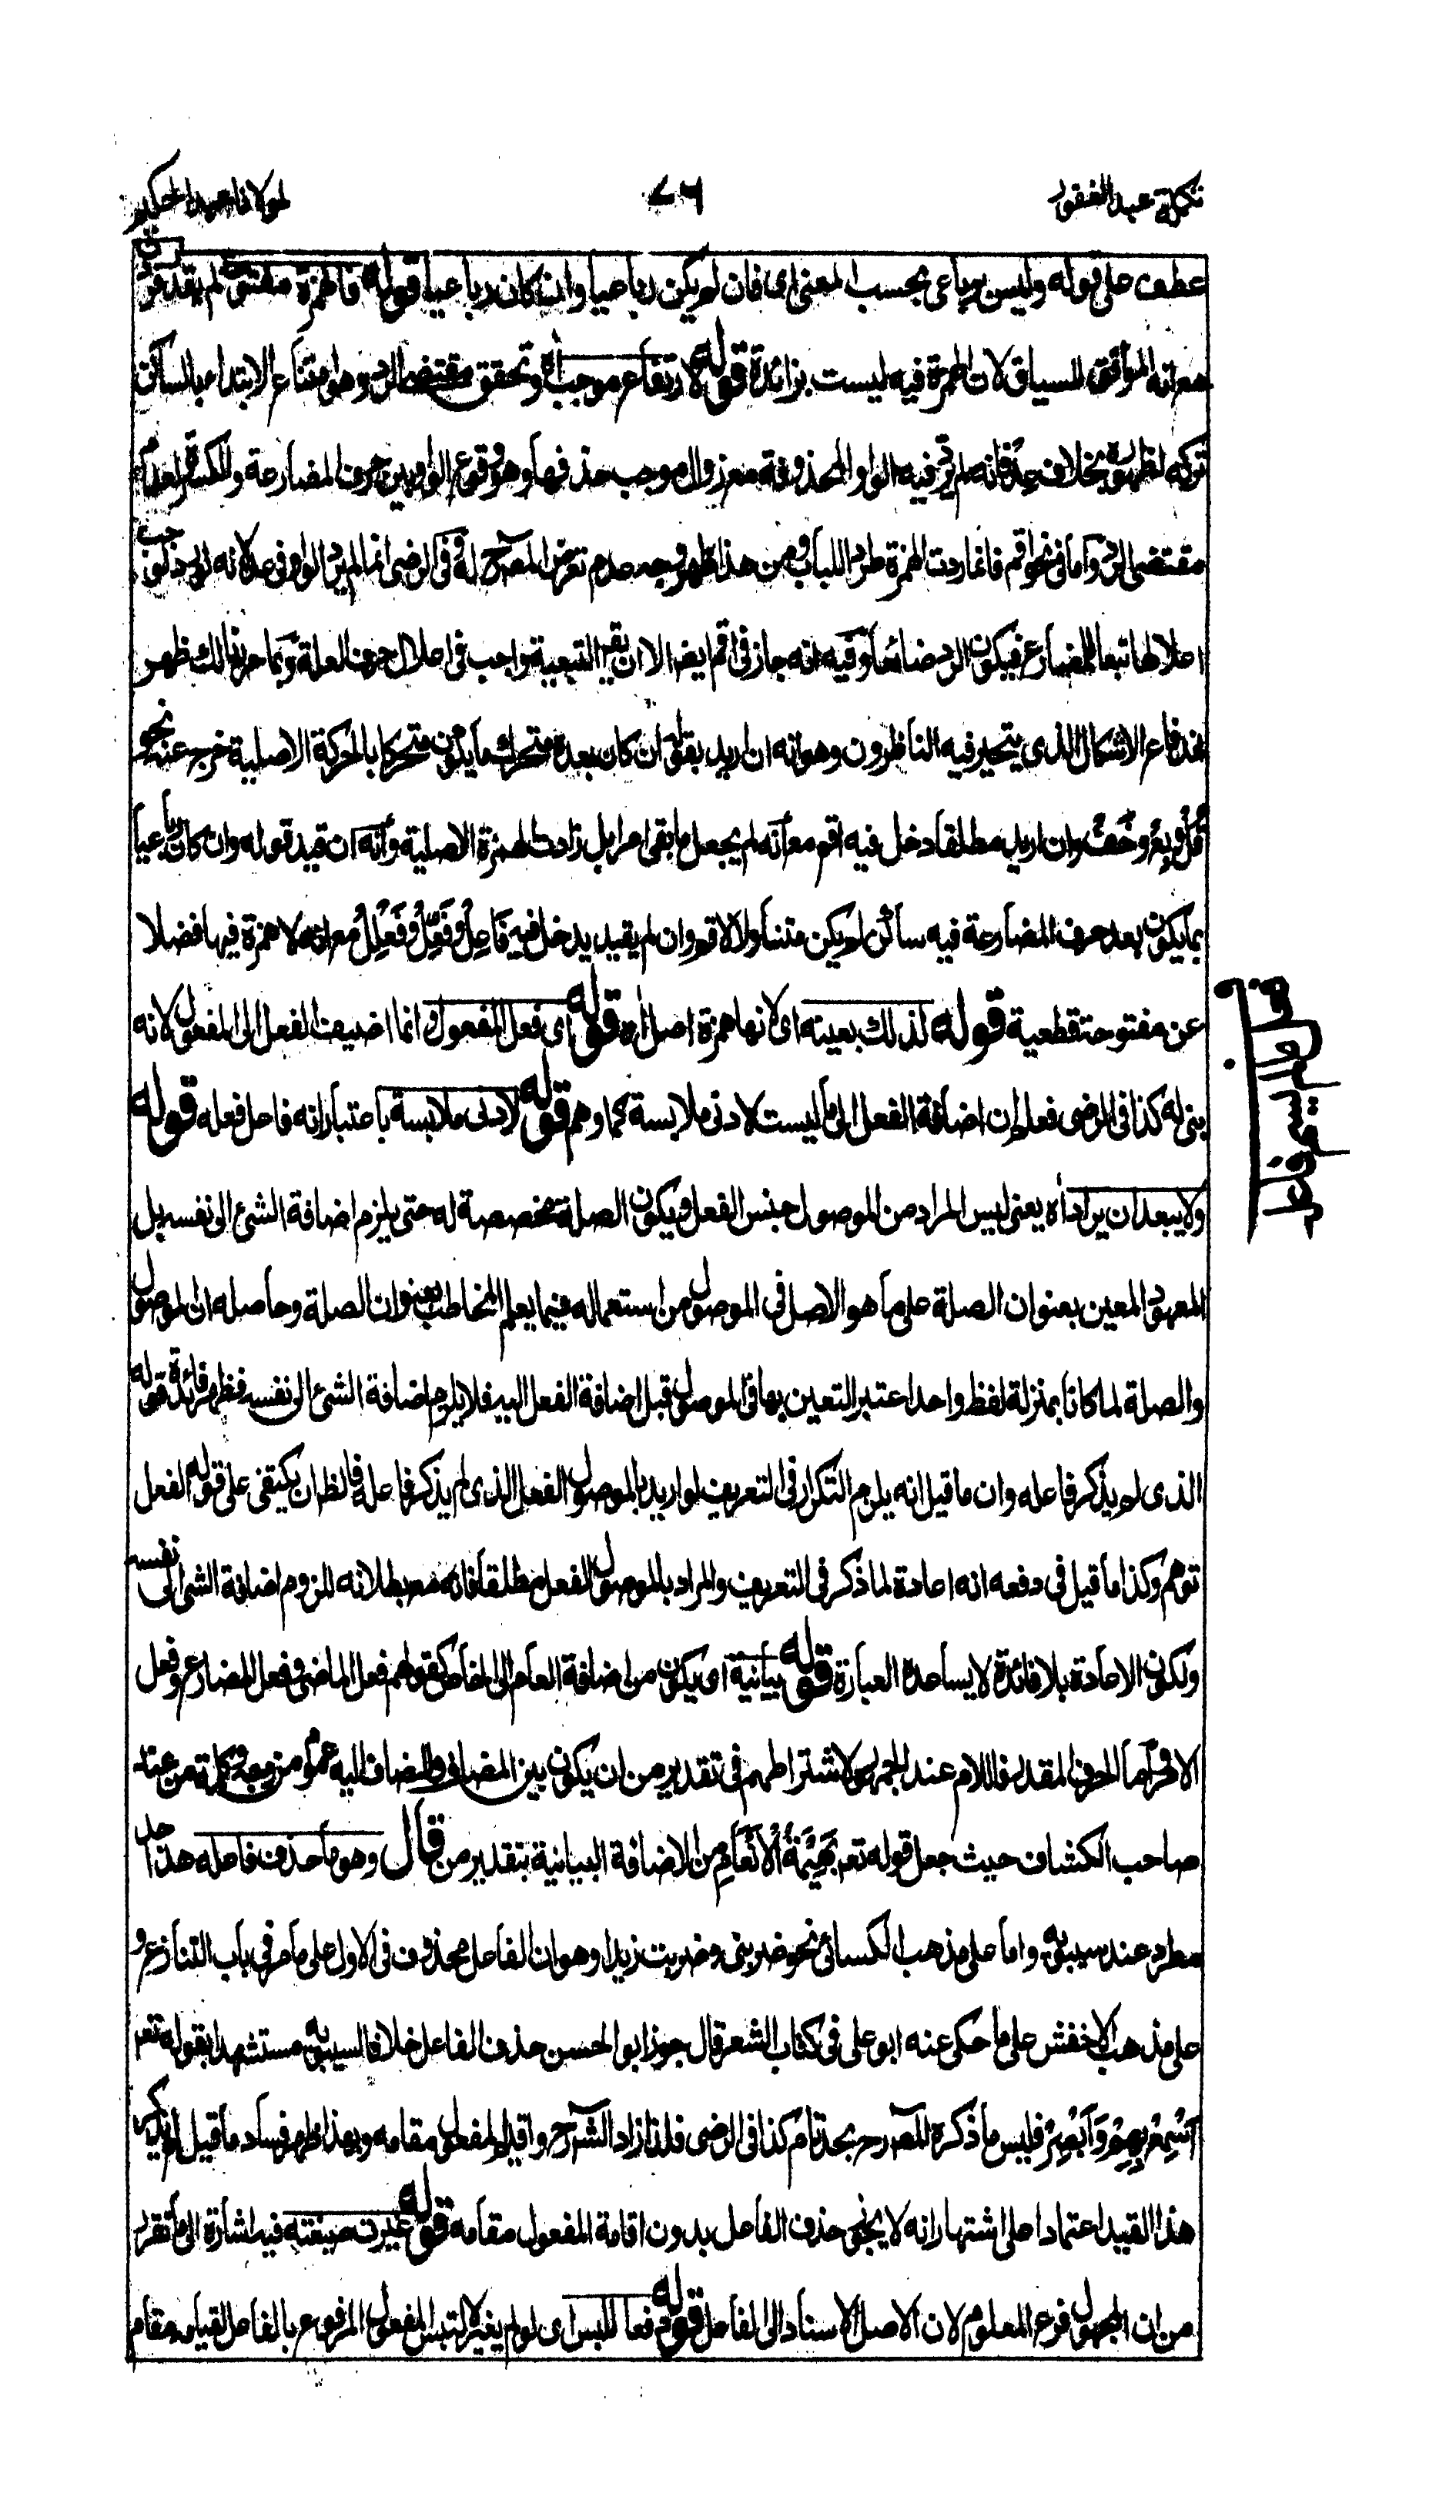 تكملة عبد الغفور
٧٦
لمولانا عبد الحكيم
عطف على قوله وليس برباعى بحسب المعنى اى فان لم يكن رباعيا وان كان رباعيا قوله فالهمزة مفتوحة لم يقل
معانه الموافق للسياق لان الهمزة فيه ليست بزائدة قوله لارتفاع موجبه اه وتحقق مقتضى الرد وهو امتناع الابتداء بالساكن
تركه لظهوره بخلاف عد فانه لم يرد فيه الواو المحذوفة مع زوال موجب حذفها وهو وقوع الواو بين حرف المضارعة والكسرة لعدم
مقتضى الرد واما فى نحو اقم فانما ردت الهمزة طردا للباب ومن هذا ظهر وجه عدم تعرض المصرح له وفى الرضى انما لم يرد الواو فى عد لانه لو رد لوجب
اعلالها تبعا للمضارع فيكون الرد ضائعا وفيه انه جاز فى اقم ايضا الا ان يقال التبعية واجب فى اعلال حرف العلة وبما حررنا لك ظهر
اندفاع الاشكال الذى يتحير فيه الناظرون وهو انه ان اريد بقوله ان كان بعده متحرك ما يكون متحركا بالحركة الاصلية خرج عنه نحو
قل وبع وخف وان اريد مطلقا دخل فيه اقم معانه لم يجعل ما بقى امرا بل زادت الهمزة الاصلية وانه ان قيد قوله وان كان رباعيا
بما يكون بعد حرف المضارعة فيه ساكن لم يكن متناولا لاقم وان لم يقيد يدخل فيه فاعل وفعل وفعلل معانه لا همزة فيها فضلا
عن مفتوحة قطعية قوله لذلك بعينه اى لانها همزة اصل اه قوله اى فعل المفعول انما اضيف الفعل الى المفعول لانه
بنى له كذا فى الرضى فعلم ان اضافة الفعل الى ما ليست لادنى ملابسة كما وهم قوله لادنى ملابسة باعتبار انه فاعل فعله قوله
ولا يبعد ان يراد اه يعنى ليس المراد من الموصول جنس الفعل ويكون الصلة مخصصة له حتى يلزم اضافة الشئ الى نفسه بل
المعهود المعين بعنوان الصلة على ما هو الاصل فى الموصول من استعماله فيما يعلم المخاطب بعنوان الصلة وحاصله ان الموصول
والصلة لما كانا بمنزلة لفظ واحد اعتبر التعين بها فى الموصول قبل اضافة الفعل اليه فلا يلزم اضافة الشئ الى نفسه فظهر فائدة قوله
الذى لم يذكر فاعله وان ما قيل انه يلزم التكرار فى التعريف لو اريد بالموصول الفعل الذى لم يذكر فاعله فالظ ان يكتفى على قوله الفعل
توهم وكذا ما قيل فى دفعه انه اعادة لما ذكر فى التعريف والمراد بالموصول الفعل مطلقا فانه مع بطلانه للزوم اضافة الشئ الى نفسه
ولكون الاعادة بلا فائدة لا يساعده العبارة قوله بيانية او يكون من اضافة العام الى الخاص كقولهم فعل الماضى وفعل المضارع وفعل
الامر اما الحرف المقدر فاللام عند الجمهور لاشتراطهم فى تقدير من ان يكون بين المضاف والمضاف اليه عموم من وجه وكلمة من عند
صاحب الكشاف حيث جعل قوله تعر بهيمة الانعام من الاضافة البيانية بتقدير من قال وهو ما حذف فاعله هذا حد
مطرد عند سيبويه واما على مذهب الكسائى نحو ضربنى وضربت زيدا وهو ان الفاعل محذوف فى الاول على ما مر فى باب التنازع و
على مذهب الاخفش على ما حكى عنه ابو على فى كتاب الشعر قال جوز ابو الحسن حذف الفاعل خلافا لسيبويه مستشهدا بقوله تعر
اسمع بهم وابصر فليس ما ذكره المصرح بحد تام كذا فى الرضى فلذا زاد الشرح واقيم المفعول مقامه وبهذا ظهر فساد ما قيل لم يذكر
هذا القيد اعتمادا على اشتهار انه لا يجئ حذف الفاعل بدون اقامة المفعول مقامه قوله غيرت صيغته فيه اشارة الى ما تقرر
من ان المجهول فرع المعلوم لان الاصل الاسناد الى الفاعل قوله دفعا للبس اى لو لم يغير لالتبس المفعول المرفوع بالفاعل لقيامه مقام